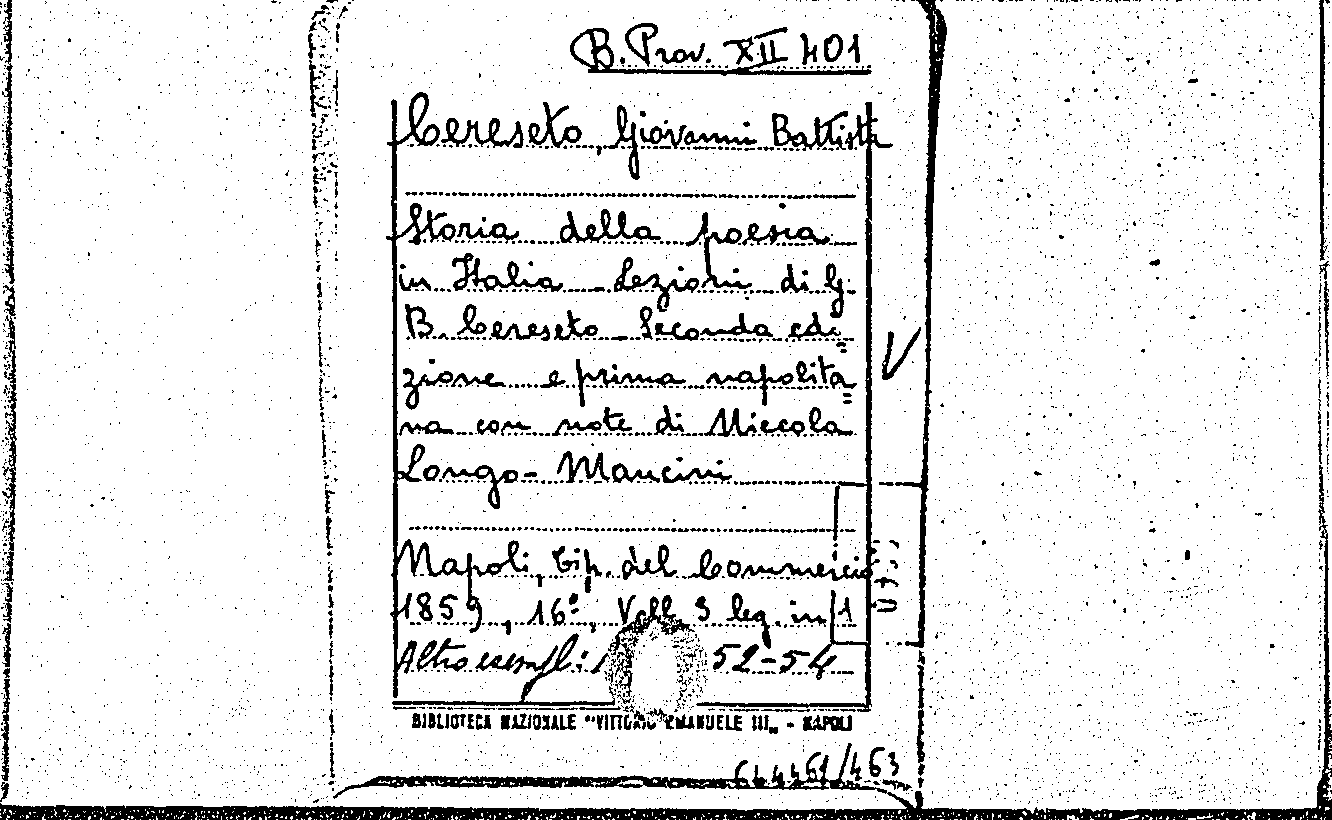 B. Prov. XII 401
Cereseto, Giovanni Battista
Storia della poesia
in Italia - Lezioni di G.
B. Cereseto - Seconda edi=
zione e prima napolita=
na con note di Niccola
Longo-Mancini
Napoli, tip. del Commercio
1859, 16°, Voll. 3 leg. in 1
Altro esempl.: 52-54
BIBLIOTECA NAZIONALE "VITTORIO EMANUELE III„ - NAPOLI
644461/463